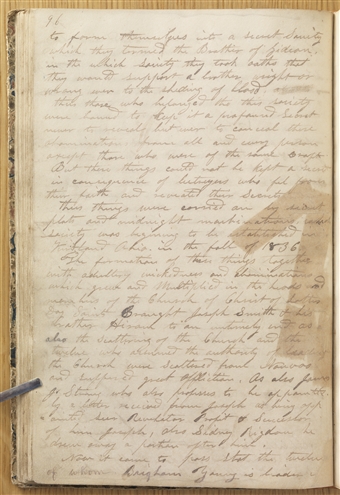 96
to form themselves into a secret Society
which they termed the Brother of Gideon.
in the which society they took oaths that
they would support a brother wright or
wrong even to the shedding of blood.
then those who belonged to this society
were bound to keep it a profound secret
never to reveal but ever to conceal these
abominations from all and every person
except those who were of the same craft
But these things could not be kept a secret
in consequence of betrayers who fel
their faith and revealed their Secrets
thus things were carried on
plots and midnight machinations
society was begining to be established
in Ohio in the fall of 1836
The formation of these things together
with adultery wickedness and abominations
which grew and Multiplied in the heads and
members of the Church of Christ of Latter
Day Saints brought Joseph Smith & his
brother Hiram to an untimely end as
also the scattering of the Church and the
twelve who assumed the authority of leading
the Church were scattered from Nauvoo
and suffered great affliction. As also James
J Strang who also professes to be appointed
by a letter received from Joseph as being app
ointed Seer Revelator Prophet & Successor
him Joseph; also Sidney Rigdon he
drew away a portion after him.
Now it came to pass that the twelve
of whom Brigham Young is leader